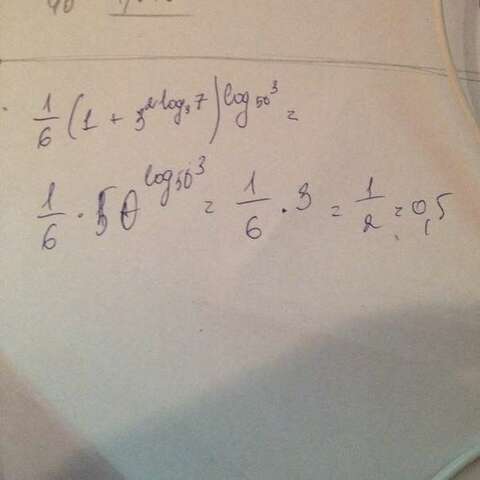 1/6 (1 + 3^{2 log_3 7})^{log_{50} 3} =
1/6 · 50^{log_{50} 3} = 1/6 · 3 = 1/2 = 0,5